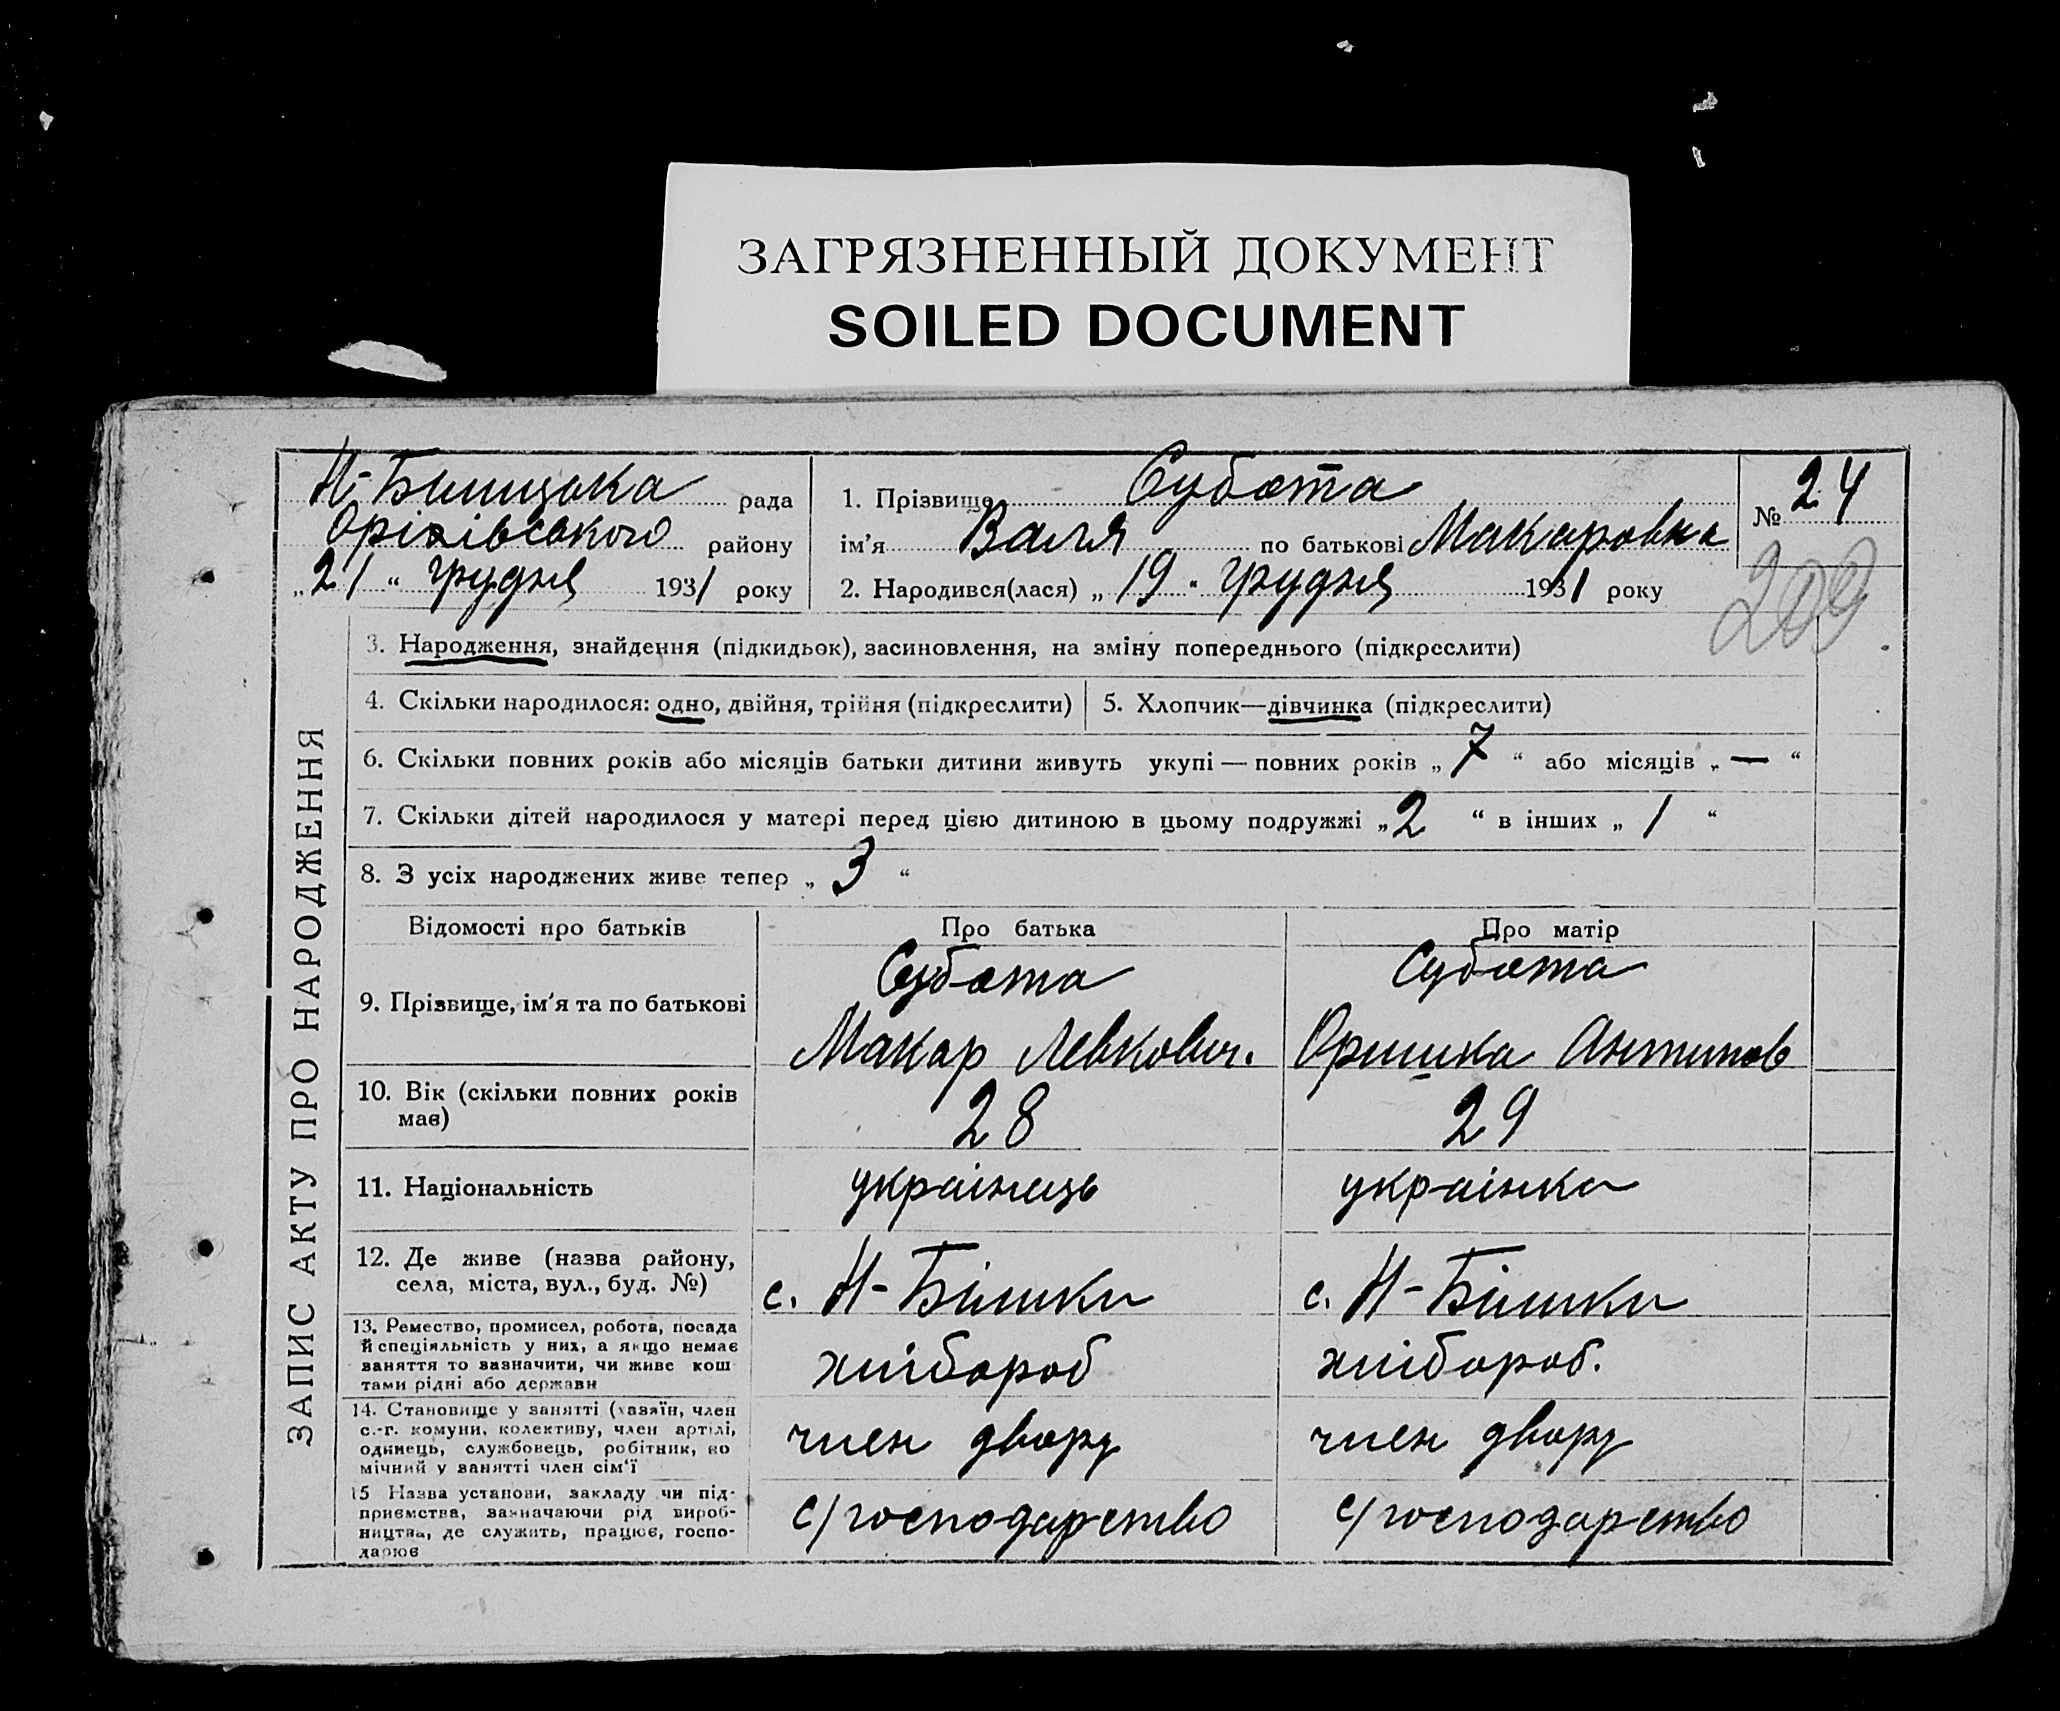 ЗАГРЯЗНЕННЫЙ ДОКУМЕНТ
SOILED DOCUMENT
Н-Білицька рада
Оріхівського району
„21“ грудня 1931 року
1. Прізвище Субота
ім'я Валя по батькові Макаровна
2. Народився(лася) „19“ грудня 1931 року
№ 24
209
ЗАПИС АКТУ ПРО НАРОДЖЕННЯ
3. Народження, знайдення (підкидьок), засиновлення, на зміну попереднього (підкреслити)
4. Скільки народилося: одно, двійня, трійня (підкреслити)
5. Хлопчик—дівчинка (підкреслити)
6. Скільки повних років або місяців батьки дитини живуть укупі — повних років „7“ або місяців „—“
7. Скільки дітей народилося у матері перед цією дитиною в цьому подружжі „2“ в інших „1“
8. З усіх народжених живе тепер „3“
Відомості про батьків Про батька Про матір
9. Прізвище, ім'я та по батькові
Субота
Макар Левкович.
Субота
Оришка Антипов
10. Вік (скільки повних років
має)
28
29
11. Національність
українець
українка
12. Де живе (назва району,
села, міста, вул., буд. №)
с. Н-Білики
с. Н-Білики
13. Ремество, промисел, робота, посада
й спеціяльність у них, а якщо немає
заняття то зазначити, чи живе кош
тами рідні або держави
хлібороб
хлібороб.
14. Становище у занятті (хазяїн, член
с.-г. комуни, колективу, член артілі,
одинець, службовець, робітник, по
мічний у занятті член сім'ї
член двору
член двору
15 Назва установи, закладу чи під-
приємства, зазначаючи рід вироб-
ництва, де служить, працює, госпо-
дарює
с/господарство
с/господарство